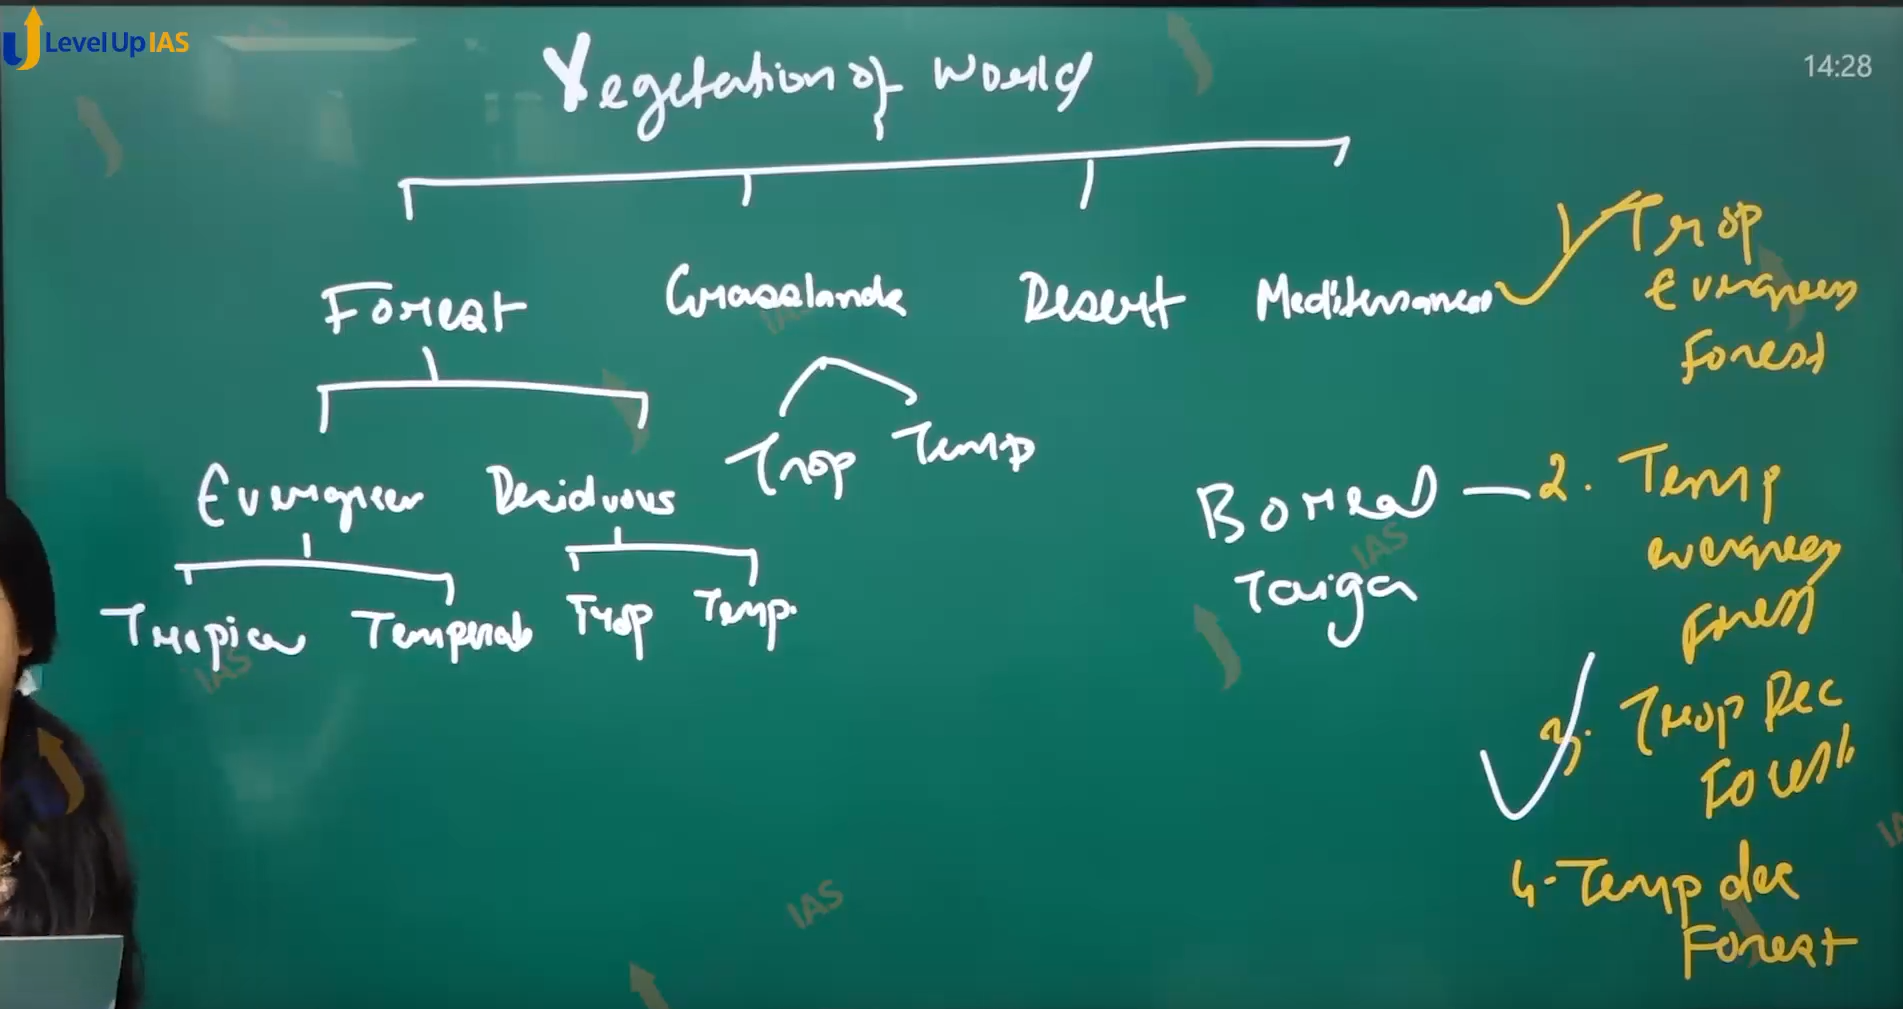 Level Up IAS
14:28
Vegetation of World
Forest Grasslands Desert Mediterranean
Evergreen Deciduous Trop Temp
Tropical Temperate Trop Temp.
Boreal
Taiga
1. Trop
Evergreen
Forest
2. Temp
evergreen
forest
3. Trop Dec
Forest
4. Temp dec
Forest
IAS
IAS
IAS
IAS